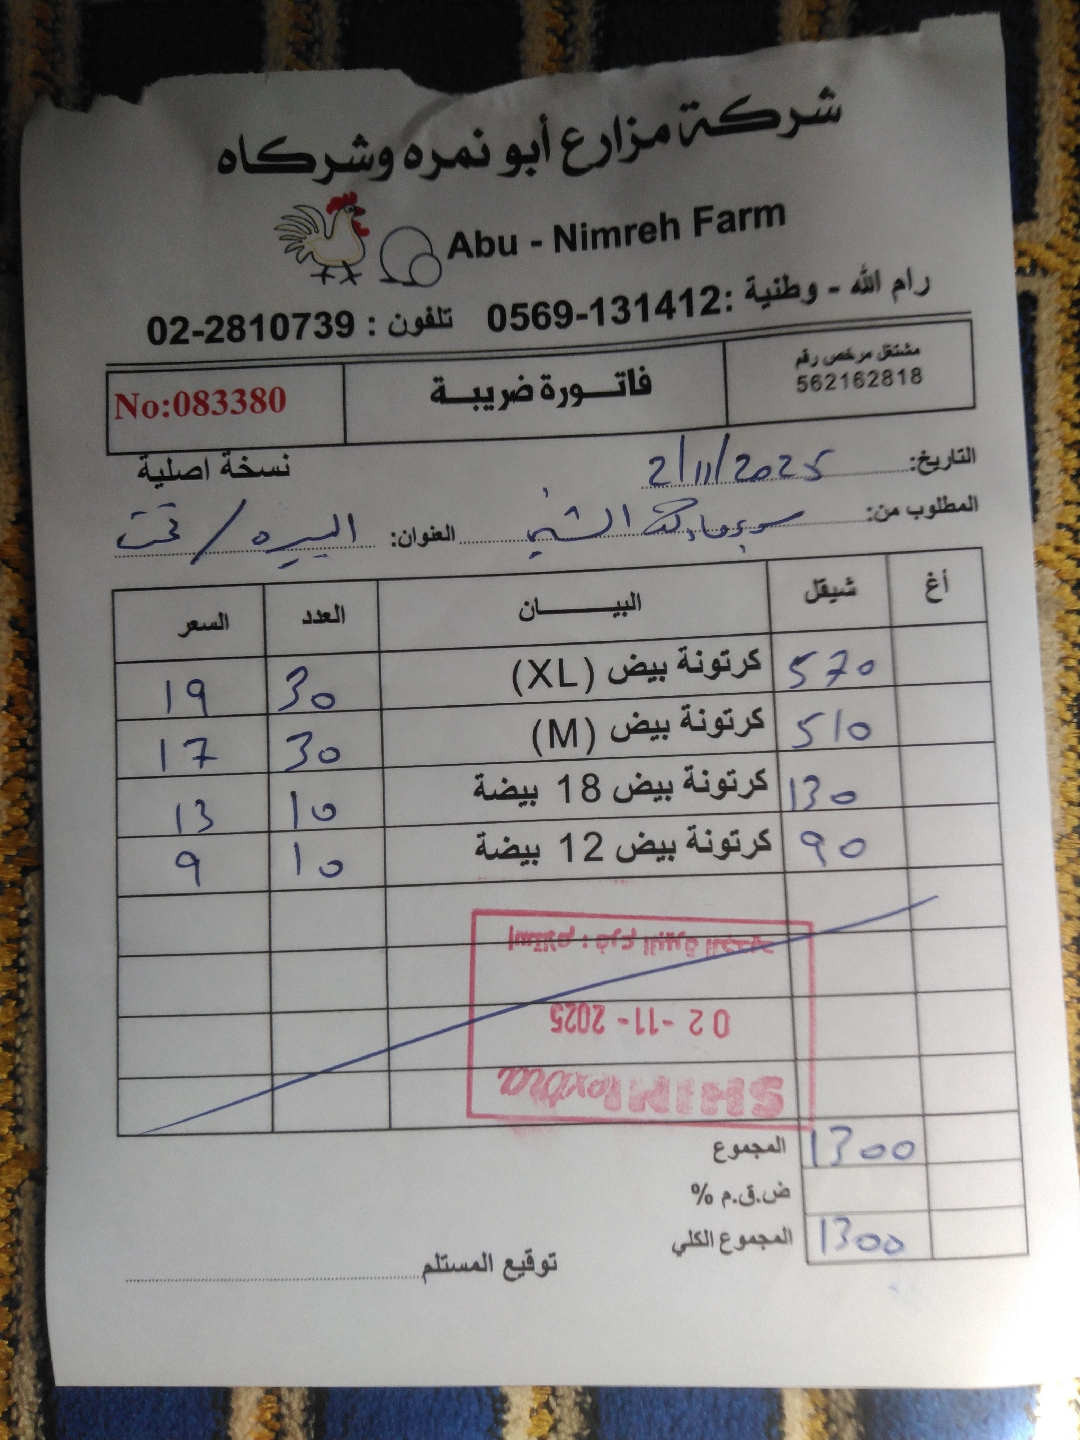 شركة مزارع أبو نمره وشركاه
Abu - Nimreh Farm
رام الله - وطنية :0569-131412 تلفون : 02-2810739
مشتغل مرخص رقم
562162818
فاتـــورة ضريبــة
No:083380
نسخة اصلية
التاريخ: 2/11/2025
المطلوب من: سوبرماركت الشني العنوان: البيره / تحت
أغ شيقل البيـــــــان العدد السعر
570 كرتونة بيض (XL) 30 19
510 كرتونة بيض (M) 30 17
130 كرتونة بيض 18 بيضة 10 13
90 كرتونة بيض 12 بيضة 10 9
SHINI extra
02-11-2025
استلام : فرع البيرة الجديد
المجموع 1300
ض.ق.م %
المجموع الكلي 1300
توقيع المستلم